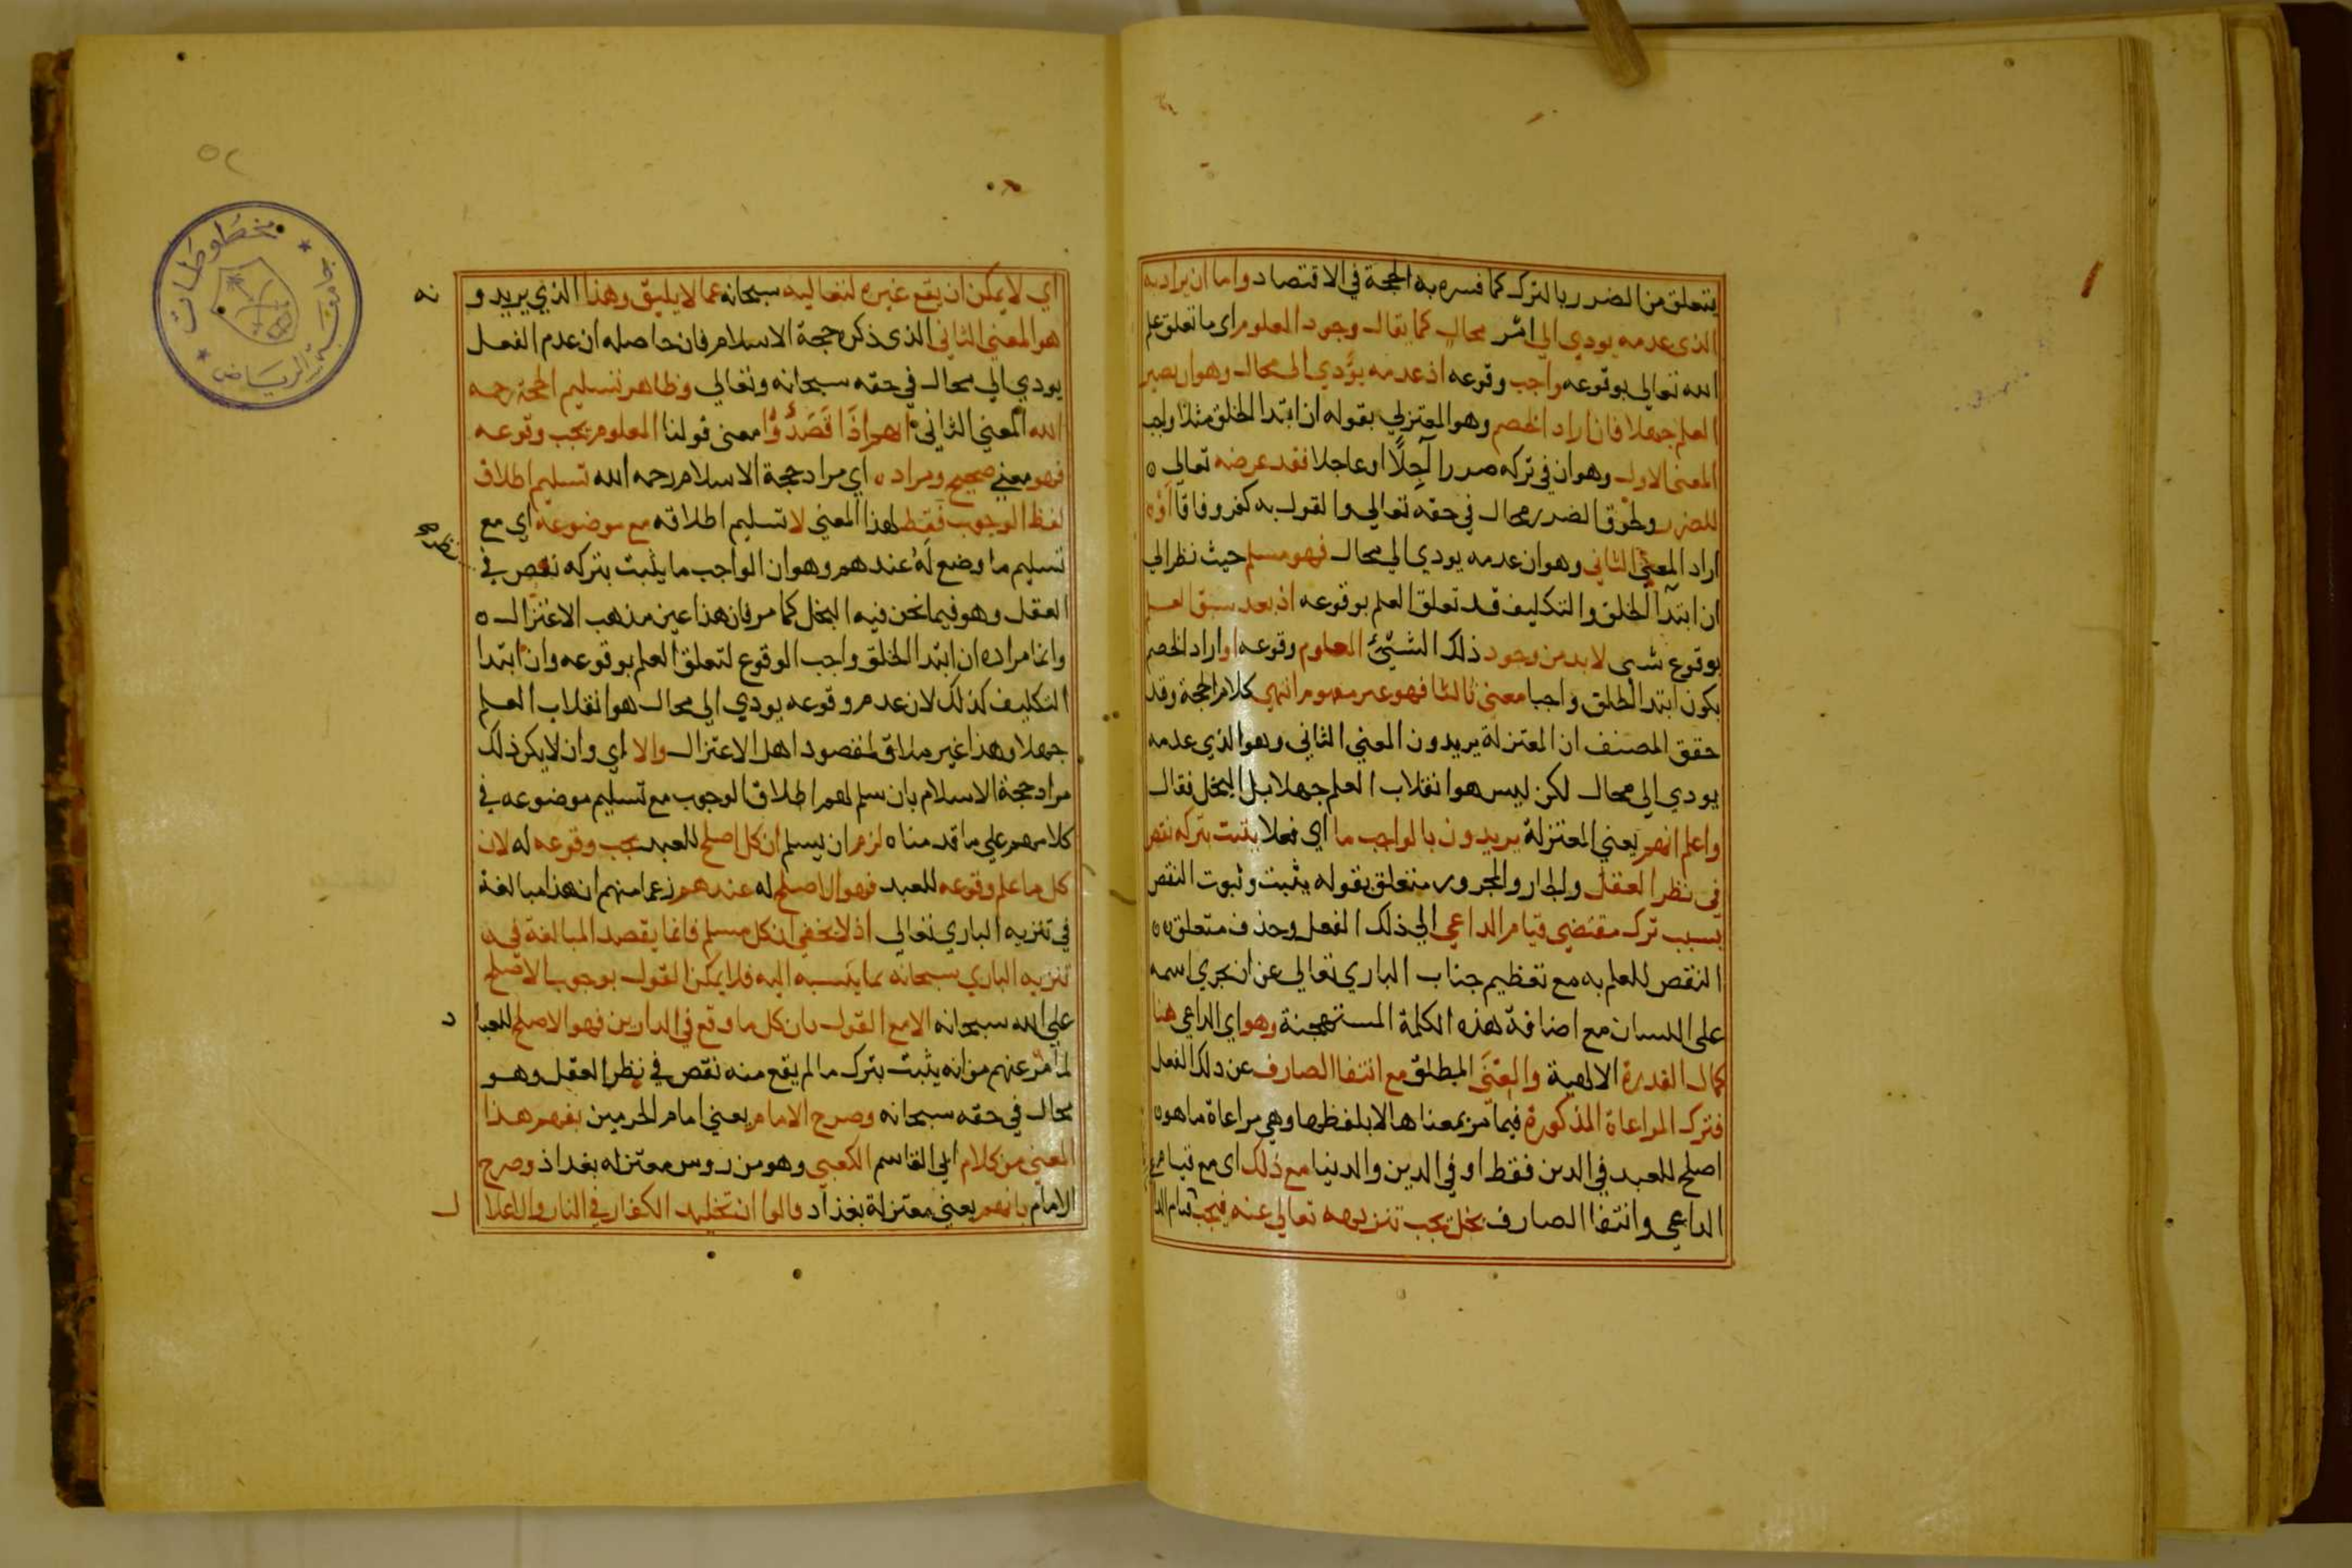 يتعلق من الضرر بالترك كما فسره به الحجة في الاقتصاد واما ان يراد به
الذي عدمه يودي الي امر محال كما يقال وجود المعلوم اي ما تعلق علم
الله تعالي بوقوعه واجب وقوعه اذ عدمه يؤدي الي محال وهو ان يصير
العلم جهلا فان اراد الخصم وهو المعتزلي بقوله ان ابتدا الخلق مثلا واجب
المعنى الاول وهو ان في تركه ضررا آجلا او عاجلا فقد عرضه تعالي ه
للضرر ولحوق الضرر محال في حقه تعالي والقول به كفر وفاقا او ه
اراد المعني الثاني وهو ان عدمه يودي الي محال فهو مسلم حيث نظر الي
ان ابتدآ الخلق والتكليف قد تعلق العلم بوقوعه اذ بعد سبق العلم
بوقوع شي لا بد من وجود ذلك الشيئ المعلوم وقوعه او اراد الخصم
بكون ابتدا الخلق واجبا معني ثالثا فهو غير مفهوم انتهي كلام الحجة وقد
حقق المصنف ان المعتزلة يريدون المعني الثاني وهو الذي عدمه
يودي الي محال لكن ليس هو انقلاب العلم جهلا بل البخل فقال
واعلم انهم يعني المعتزلة يريدون بالواجب ما اي فعلا يثبت بتركه نقص
في نظر العقل والجار والمجرور متعلق بقوله يثبت وثبوت النقص
بسبب ترك مقتضي قيام الداعي الي ذلك الفعل وحذف متعلق ه ه
النقص للعلم به مع تعظيم جناب الباري تعالي عن ان يجري اسمه
على اللسان مع اضافة هذه الكلمة المستهجنة وهو اي الداعي هنا
كمال القدرة الالهية والغنى المطلق مع انتفا الصارف عن ذلك الفعل
فترك المراعاة المذكورة فيما مر بمعناها لا بلفظها وهي مراعاة ما هو ه
اصلح للعبد في الدين فقط او في الدين والدنيا مع ذلك اي مع قيام
الداعي وانتفا الصارف بخل يجب تنزيهه تعالي عنه فيجب
٥٢
جامعة الرياض
مخطوطات
اي لا يمكن ان يقع غيره لتعاليه سبحانه عما لا يليق وهذا الذي يريدو نه
هو المعني الثاني الذي ذكره حجة الاسلام فان حاصله ان عدم الفعل
يودي الي محال في حقه سبحانه وتعالي وظاهر تسليم الحجة رحمه
الله المعني الثاني انهم اذا قصدوا معنى قولنا المعلوم يجب وقوعه
فهو معني صحيح ومراده اي مراد حجة الاسلام رحمه الله تسليم اطلاق
لفظ الوجوب فقط لهذا المعني لا تسليم اطلاقه مع موضوعه اي مع
تسليم ما وضع له عندهم وهو ان الواجب ما يثبت بتركه نقص في
العقل وهو فيما نحن فيه البخل كما مر فان هذا عين مذهب الاعتزال ه
وانما مراده ان ابتدا الخلق واجب الوقوع لتعلق العلم بوقوعه وان ابتدا
التكليف كذلك لان عدم وقوعه يودي الي محال هو انقلاب العلم
جهلا وهذا غير ملاق لمقصود اهل الاعتزال والا اي وان لا يكن ذلك
مراد حجة الاسلام بان سلم لهم اطلاق الوجوب مع تسليم موضوعه في
كلامهم علي ما قدمناه لزم ان يسلم ان كل اصلح للعبد يجب وقوعه له لان
كل ما علم وقوعه للعبد فهو الاصلح له عندهم زعما منهم ان هذا مبالغة
في تنزيه الباري تعالي اذ لا يخفي ان كل مسلم فانما يقصد المبالغة في ه
تنزيه الباري سبحانه بما ينسبه اليه فلا يمكن القول بوجوب الاصلح
علي الله سبحانه الا مع القول بان كل ما وقع في الدارين فهو الاصلح للعبا د
لما مر عنهم من انه يثبت بترك ما لم يقع منه نقص في نظر العقل وهو
محال في حقه سبحانه وصرح الامام يعني امام الحرمين بفهم هذا
المعني من كلام ابي القاسم الكعبي وهو من روس معتزله بغداد وصرح
الامام بانهم يعني معتزلة بغداد قالوا ان تخليد الكفار في النار والاغلا ل